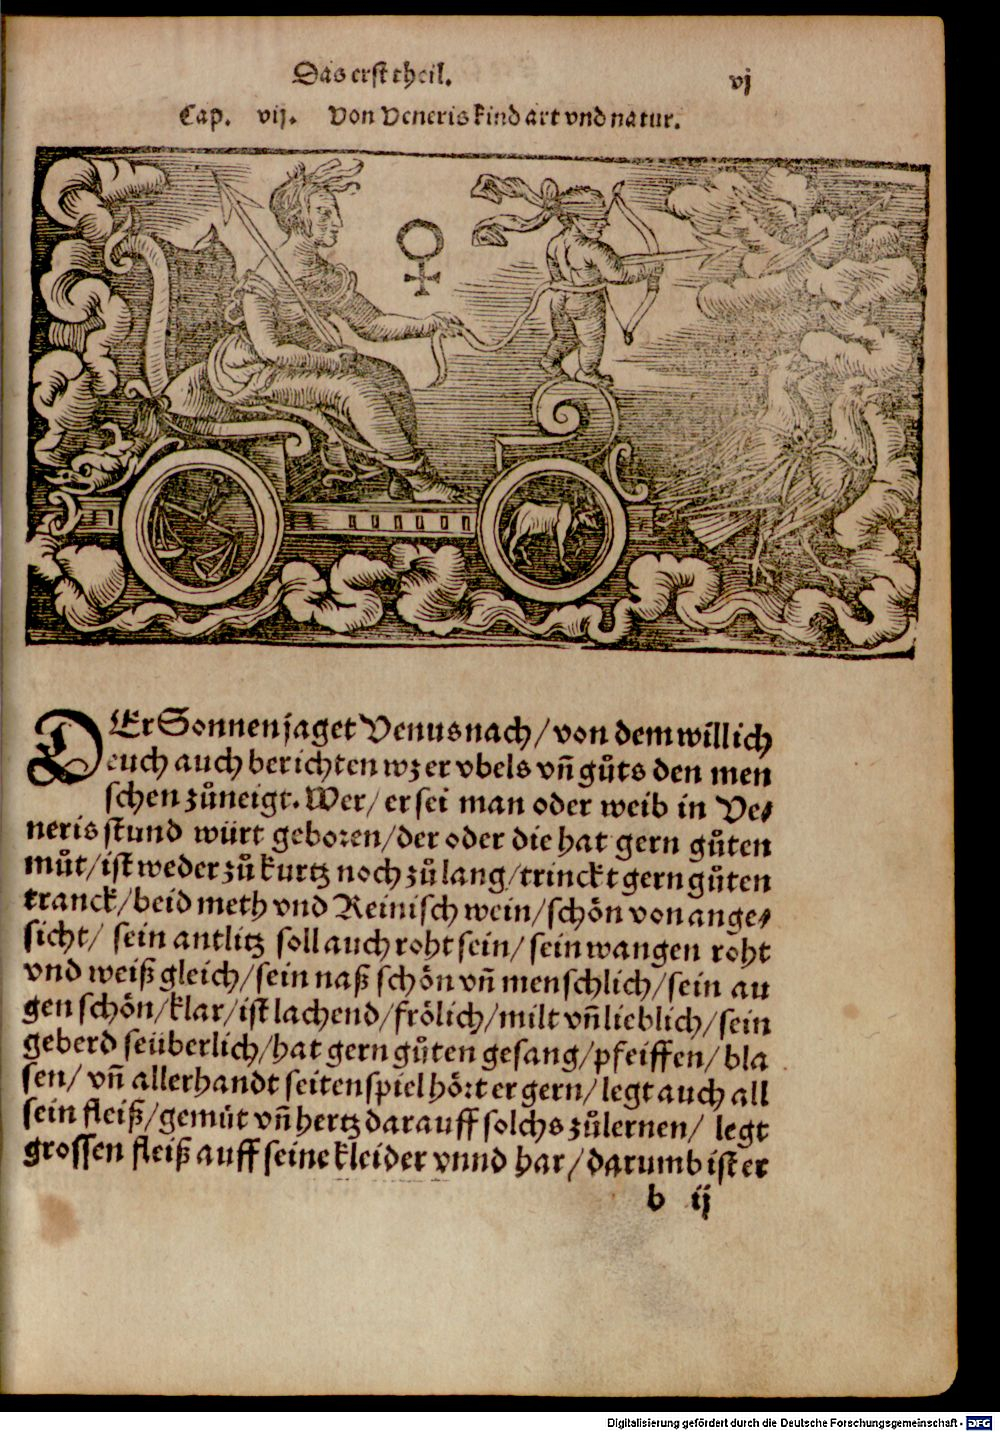 Das erst theil.
vj
Cap. vij. Von Veneris kind art vnd natur.
DEr Sonnen jaget Venus nach / von dem will ich
euch auch berichten wz er vbels vn̄ gůts den men
schen zůneigt. Wer / er sei man oder weib in Ve⸗
neris stund würt geboren / der oder die hat gern gůten
můt / ist weder zů kurtz noch zů lang / trinckt gern gůten
tranck / beid meth vnd Reinisch wein / schön von ange⸗
sicht / sein antlitz soll auch roht sein / sein wangen roht
vnd weiß gleich / sein naß schön vn̄ menschlich / sein au
gen schön / klar / ist lachend / frölich / milt vn̄ lieblich / sein
geberd seüberlich / hat gern gůten gesang / pfeiffen / bla
sen / vn̄ allerhandt seitenspiel hört er gern / legt auch all
sein fleiß / gemüt vn̄ hertz darauff solchs zůlernen / legt
grossen fleiß auff seine kleider vnnd har / darumb ist er
b ij
Digitalisierung gefördert durch die Deutsche Forschungsgemeinschaft - DFG